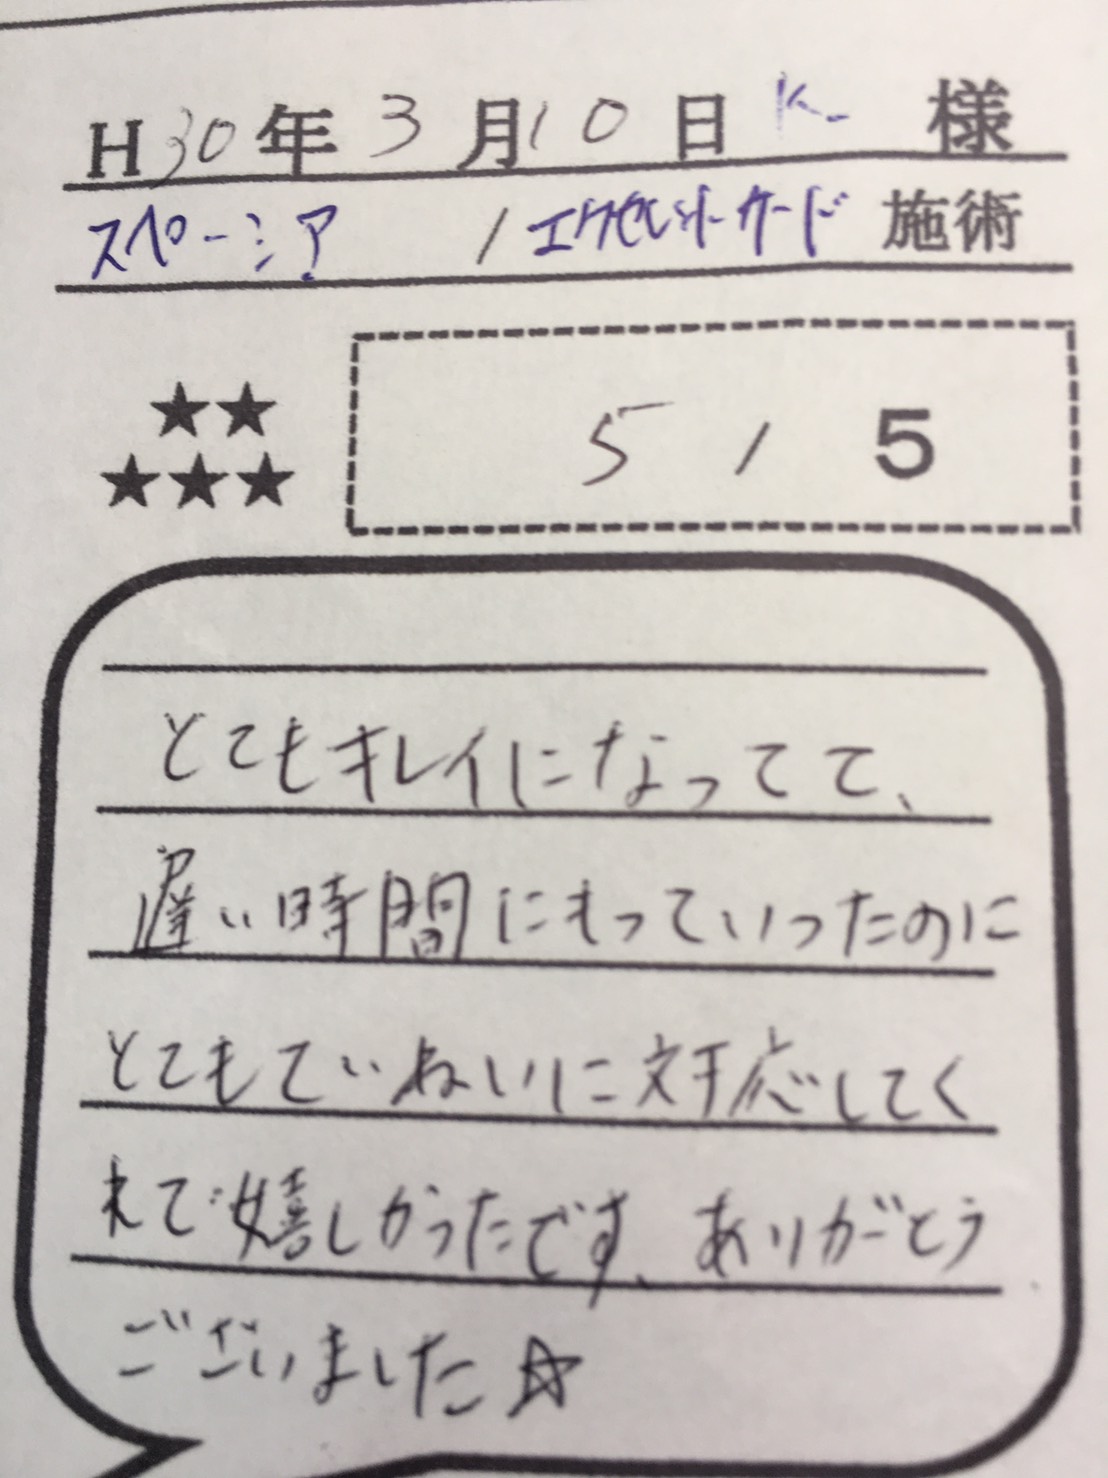 H30年3月10日 K. 様
スペーシア / エクセレントガード 施術
★★
★★★
5 / 5
とてもキレイになってて、
遅い時間にもっていったのに
とてもていねいに対応してく
れて嬉しかったです、ありがとう
ございました☆